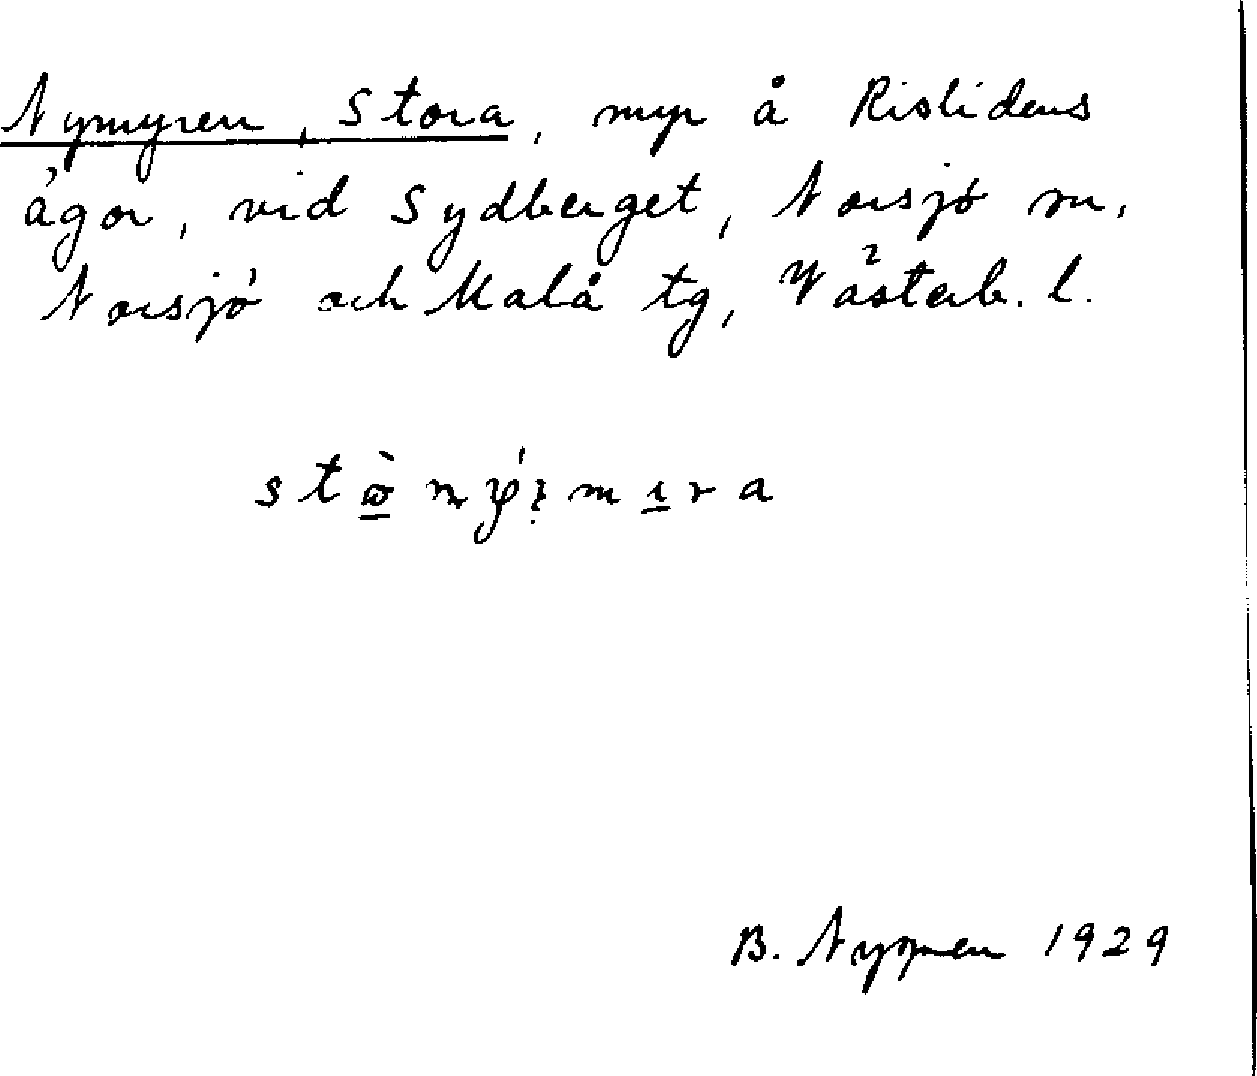 Nymyren, Stora, myr å Rislidens
ägor, vid Sydberget, Norsjö sn,
Norsjö och Malå tg, Västerb. l.
B. Nyman 1929